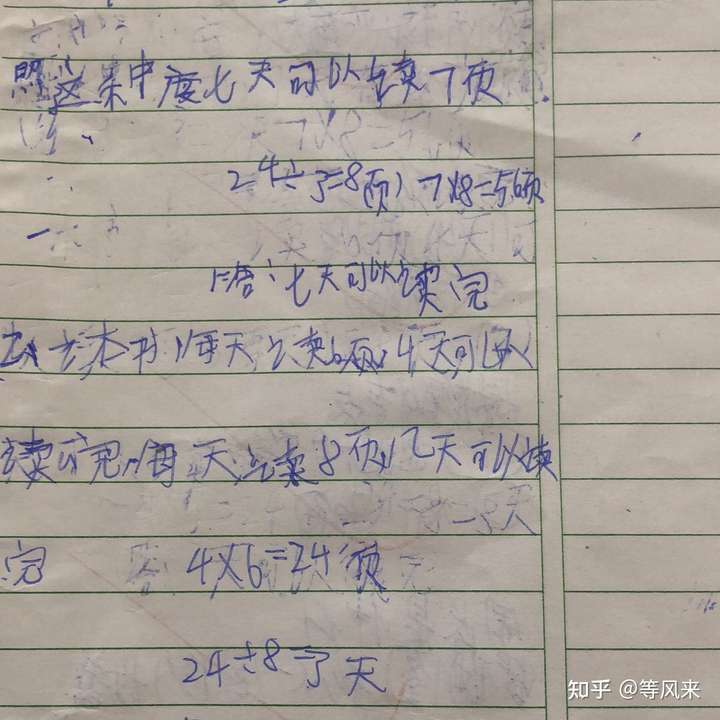 照这未中度七天可以读7页
24÷3=8(页) 7×8=56页
答:七天可以读完
去本书,每天读6页,4天可以
读完,每天读8页,几天可以读
完
4×6=24页
24÷8=3天
知乎 @等风来